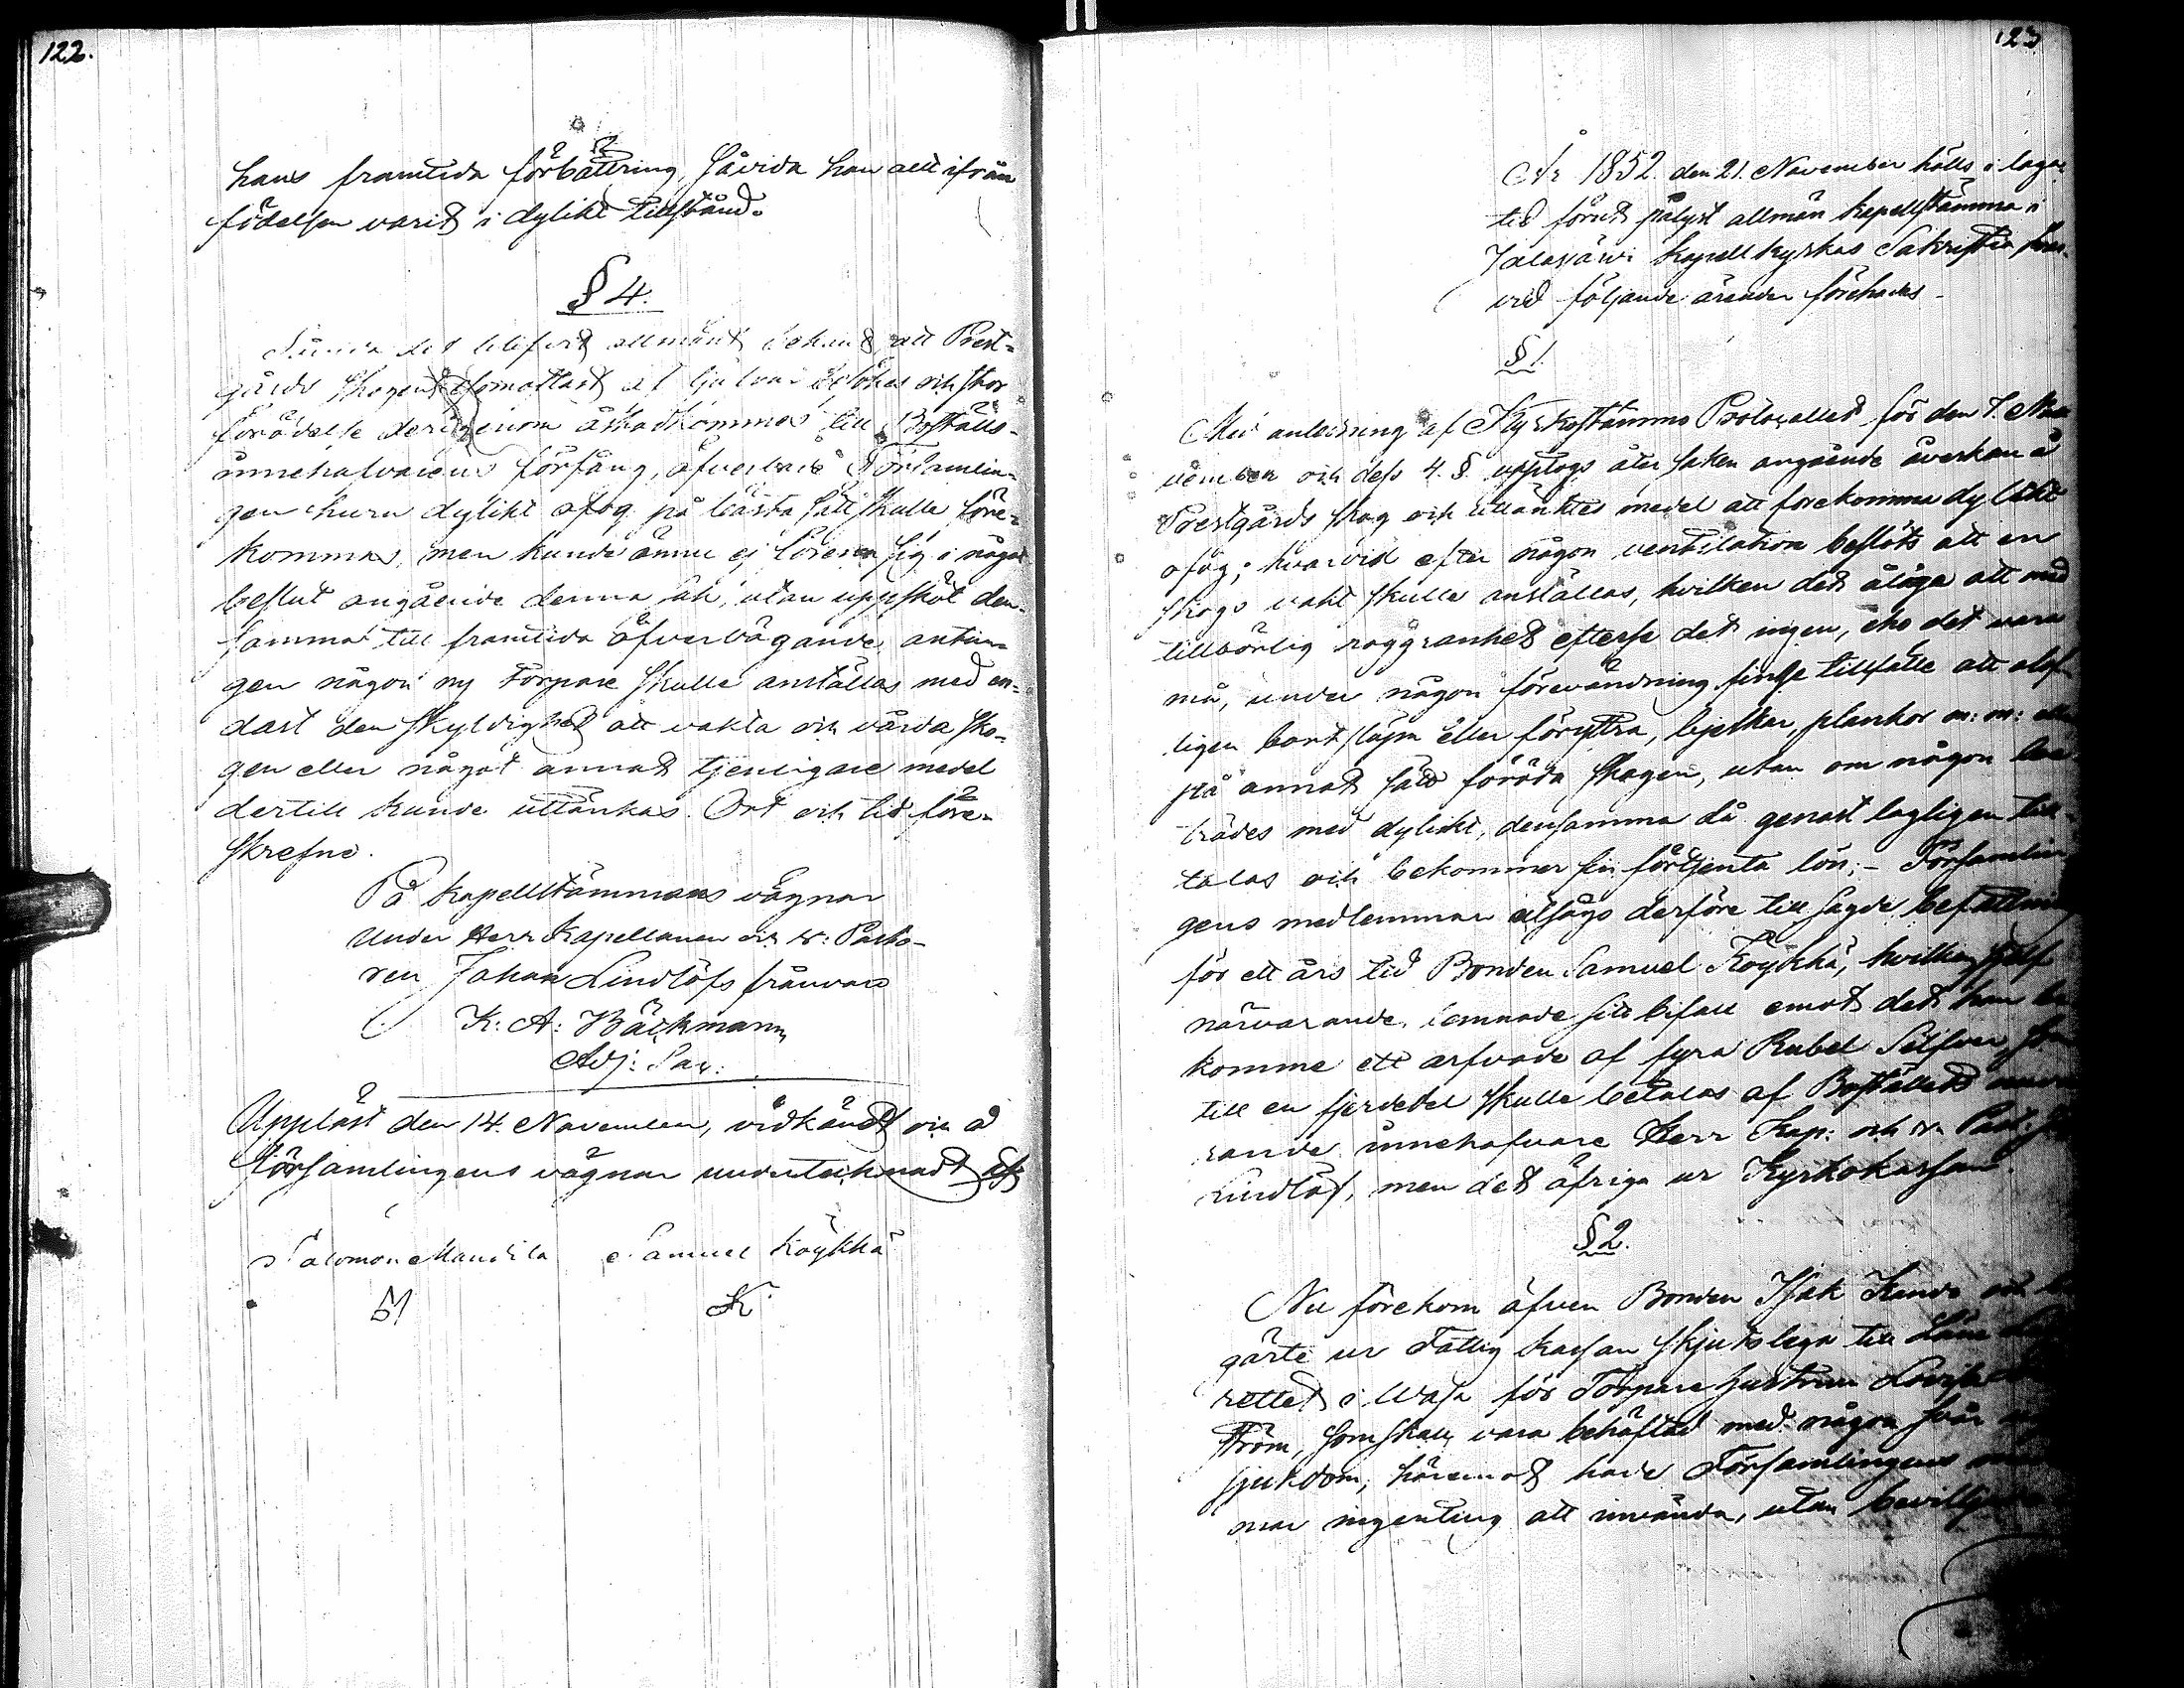 122.
hans framtida förbättring, såvida han allt ifrån
födelsen varit i dylikt tillstånd.
§ 4.
det blifvit allmänt bekant, att Prest-
gårds skogen af tjufvar besökes och skog
förödelse derigenom åstadkommes till Boställs-
innehafvarens förfång, öfverlade Församlin-
gen huru dylikt ofog på bästa sätt skulle före-
kommas, men kunde ännu ej förena sig i något
beslut angående denna sak, utan uppsköt den-
samma till framtida öfvervägande, antin-
gen någon ny Torpare skulle anställas med en-
dast den skyldighet att vakta och vårda sko-
gen eller något annat tjenligare medel
dertill kunde uttänkas. Ort och tid före-
skrefne.
På Kapellstämmans vägnar
Under Herr Kapellanen och v: Pasto-
ren Johan Lindlöfs frånvaro
K: A: Bäckmann
Adj: Sac:
Uppläst den 14. November, vidkändt och å
Församlingens vägnar undertecknadt af
Salomon Mandila Samuel Köykkä
M K
123
År 1852. den 21. November hölls i laga
tid förut pålyst allmän Kapellstämma i
Jalasjärvi Kapellkyrkas Sakristia hvar-
vid följande ärender förehades.
§ 1.
Med anledning af Kyrkostämmo Protocollet för den 7. No-
vember och dess 4. §. upptogs åter saken angående åverkan å
Prestgårds skog och uttänktes medel att förekomma dylikt
ofog; hvarvid efter någon ventilation beslöts att en
skogs vakt skulle anställas, hvilken det åläge att med
tillbörlig noggranhet efterse det ingen, eho det vara
må, under någon förevändning finge tillfälle att olof-
ligen bortsläpa eller föryttra, bjelkar, plankor m: m: eller
på annat sätt föröda skogen, utan om någon be-
trädes med dylikt, densamma då genast lagligen till-
talas och bekommer sin förtjenta lön; - Församlin-
gens medlemmar utsågs derföre till sagde befattning
för ett års tid Bonden Samuel Köykkä, hvilken sjelf
närvarande, lemnade sitt bifall emot det han be-
komme ett arfvode af fyra Rubel Silfver, som
till en fjerdedel skulle betalas af Boställets nuva-
rande innehafvare Herr Kap: och v. Past:
Lindlöf, men det öfriga ur Kyrkokassan.
§ 2.
Nu förekom äfven Bonden Isak Kando och be-
gärte ur Fattig kassan skjutslega till Läns
rettet i Wasa för Torpare hustrun Lovisa
ström, som skall vara behäftad med någon svår
sjukdom; häremot hade Församlingens
mar ingenting att invända, utan bevilljade